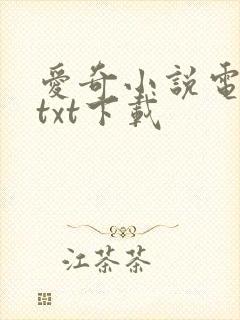 愛奇小說電
txt下載
江茶茶